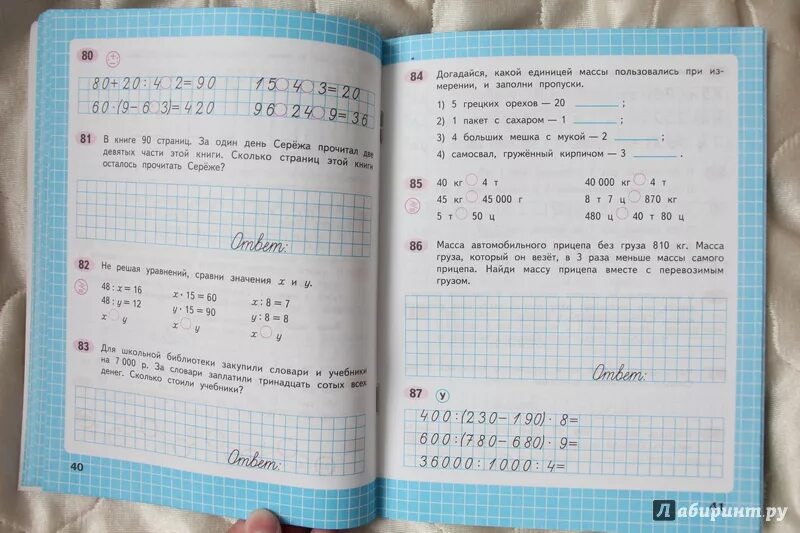 80
80+20:4○2=90 15○4○3=20
60·(9-6○3)=420 96○24○9=36
81 В книге 90 страниц. За один день Серёжа прочитал две
девятых части этой книги. Сколько страниц этой книги
осталось прочитать Серёже?
Ответ:
82 Не решая уравнений, сравни значения x и y.
48 : x = 16 x · 15 = 60 x : 8 = 7
48 : y = 12 y · 15 = 90 y : 8 = 8
x ○ y x ○ y x ○ y
83 Для школьной библиотеки закупили словари и учебники
на 7 000 р. За словари заплатили тринадцать сотых всех
денег. Сколько стоили учебники?
Ответ:
40
84 Догадайся, какой единицей массы пользовались при из-
мерении, и заполни пропуски.
1) 5 грецких орехов — 20 ______ ;
2) 1 пакет с сахаром — 1 ______ ;
3) 4 больших мешка с мукой — 2 ______ ;
4) самосвал, гружённый кирпичом — 3 ______ .
85 40 кг ○ 4 т 40 000 кг ○ 4 т
45 кг ○ 45 000 г 8 т 7 ц ○ 870 кг
5 т ○ 50 ц 480 ц ○ 40 т 80 ц
86 Масса автомобильного прицепа без груза 810 кг. Масса
груза, который он везёт, в 3 раза меньше массы самого
прицепа. Найди массу прицепа вместе с перевозимым
грузом.
Ответ:
87 У
400:(230-190)·8=
600:(780-680)·9=
36000:1000:4=
41
Лабиринт.ру